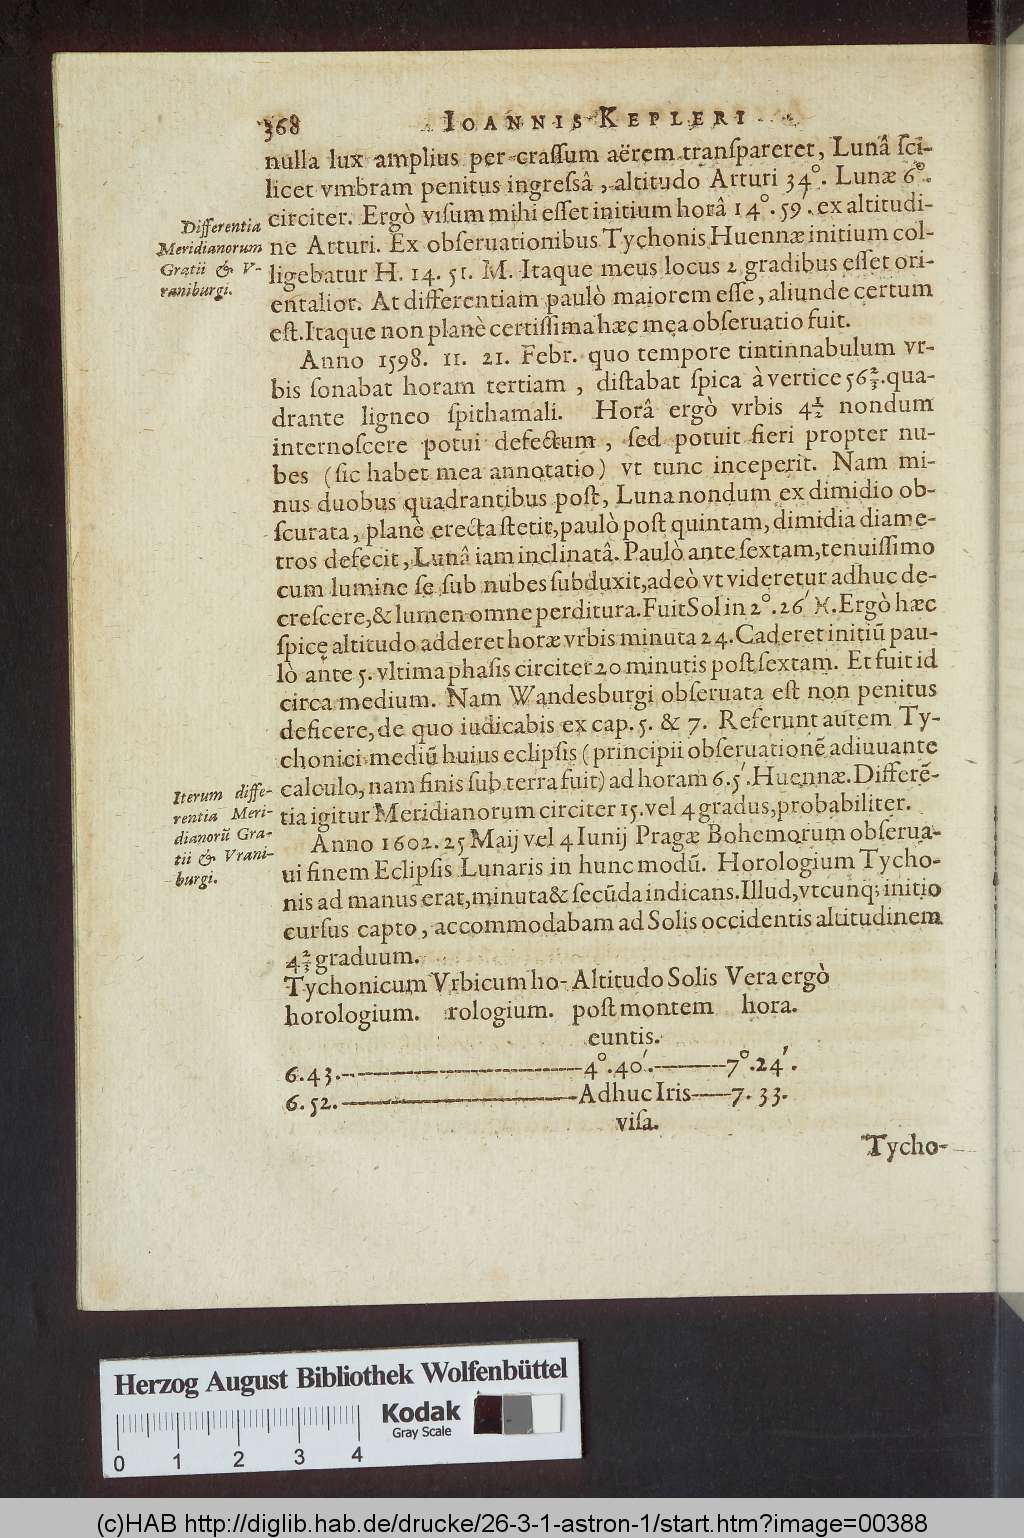 368 IOANNIS KEPLERI
nulla lux amplius per crassum aërem transpareret, Lunâ sci-
licet vmbram penitus ingressâ, altitudo Arturi 34°. Lunæ 6°.
circiter. Ergò visum mihi esset initium horâ 14°. 59′. ex altitudi-
ne Arturi. Ex obseruationibus Tychonis Huennæ initium col-
ligebatur H. 14. 51. M. Itaque meus locus 2 gradibus esset ori-
entalior. At differentiam paulò maiorem esse, aliunde certum
est. Itaque non planè certissima hæc mea obseruatio fuit.
Differentia
Meridianorum
Gratii & V-
raniburgi.
Anno 1598. 11. 21. Febr. quo tempore tintinnabulum vr-
bis sonabat horam tertiam, distabat spica à vertice 56⅔. qua-
drante ligneo spithamali. Horâ ergò vrbis 4½ nondum
internoscere potui defectum, sed potuit fieri propter nu-
bes (sic habet mea annotatio) vt tunc inceperit. Nam mi-
nus duobus quadrantibus post, Luna nondum ex dimidio ob-
scurata, planè erecta stetit, paulò post quintam, dimidia diame-
tros defecit, Lunâ iam inclinatâ. Paulò ante sextam, tenuissimo
cum lumine se sub nubes subduxit, adeò vt videretur adhuc de-
crescere, & lumen omne perditura. Fuit Sol in 2°. 26′ ♓. Ergò hæc
spicę altitudo adderet horæ vrbis minuta 24. Caderet initiū pau-
lò ante 5. vltima phasis circiter 20 minutis post sextam. Et fuit id
circa medium. Nam Wandesburgi obseruata est non penitus
deficere, de quo iudicabis ex cap. 5. & 7. Referunt autem Ty-
chonici mediū huius eclipsis (principii obseruationē adiuuante
calculo, nam finis sub terra fuit) ad horam 6. 5′. Huennæ. Differē-
tia igitur Meridianorum circiter 15. vel 4 gradus, probabiliter.
Iterum diffe-
rentia Meri-
dianorū Gra-
tii & Vrani-
burgi.
Anno 1602. 25 Maij vel 4 Iunij Pragæ Bohemorum obserua-
ui finem Eclipsis Lunaris in hunc modū. Horologium Tycho-
nis ad manus erat, minuta & secūda indicans. Illud, vtcunq; initio
cursus capto, accommodabam ad Solis occidentis altitudinem
4⅔ graduum.
Tychonicum Vrbicum ho- Altitudo Solis Vera ergò
horologium. rologium. post montem hora.
euntis.
6. 43. ——— 4°. 40′. ——— 7°. 24′.
6. 52. ——— Adhuc Iris ——— 7. 33.
visa.
Tycho-
Herzog August Bibliothek Wolfenbüttel
Kodak
Gray Scale
0 1 2 3 4
(c)HAB http://diglib.hab.de/drucke/26-3-1-astron-1/start.htm?image=00388